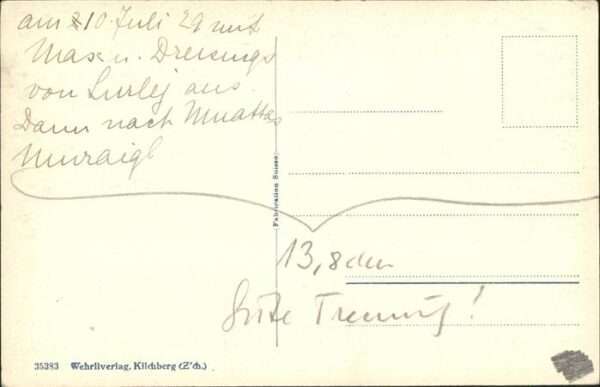 am 10 Juli 29 mit
Max u.
von Surlej aus.
Dann nach Muottas
Muraigl
Fabrication Suisse
13,8
Gute Trennung!
35383 Wehrliverlag, Kilchberg (Z'ch.)